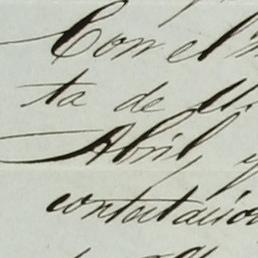 Con el
ta de
Abril, y
contestacion